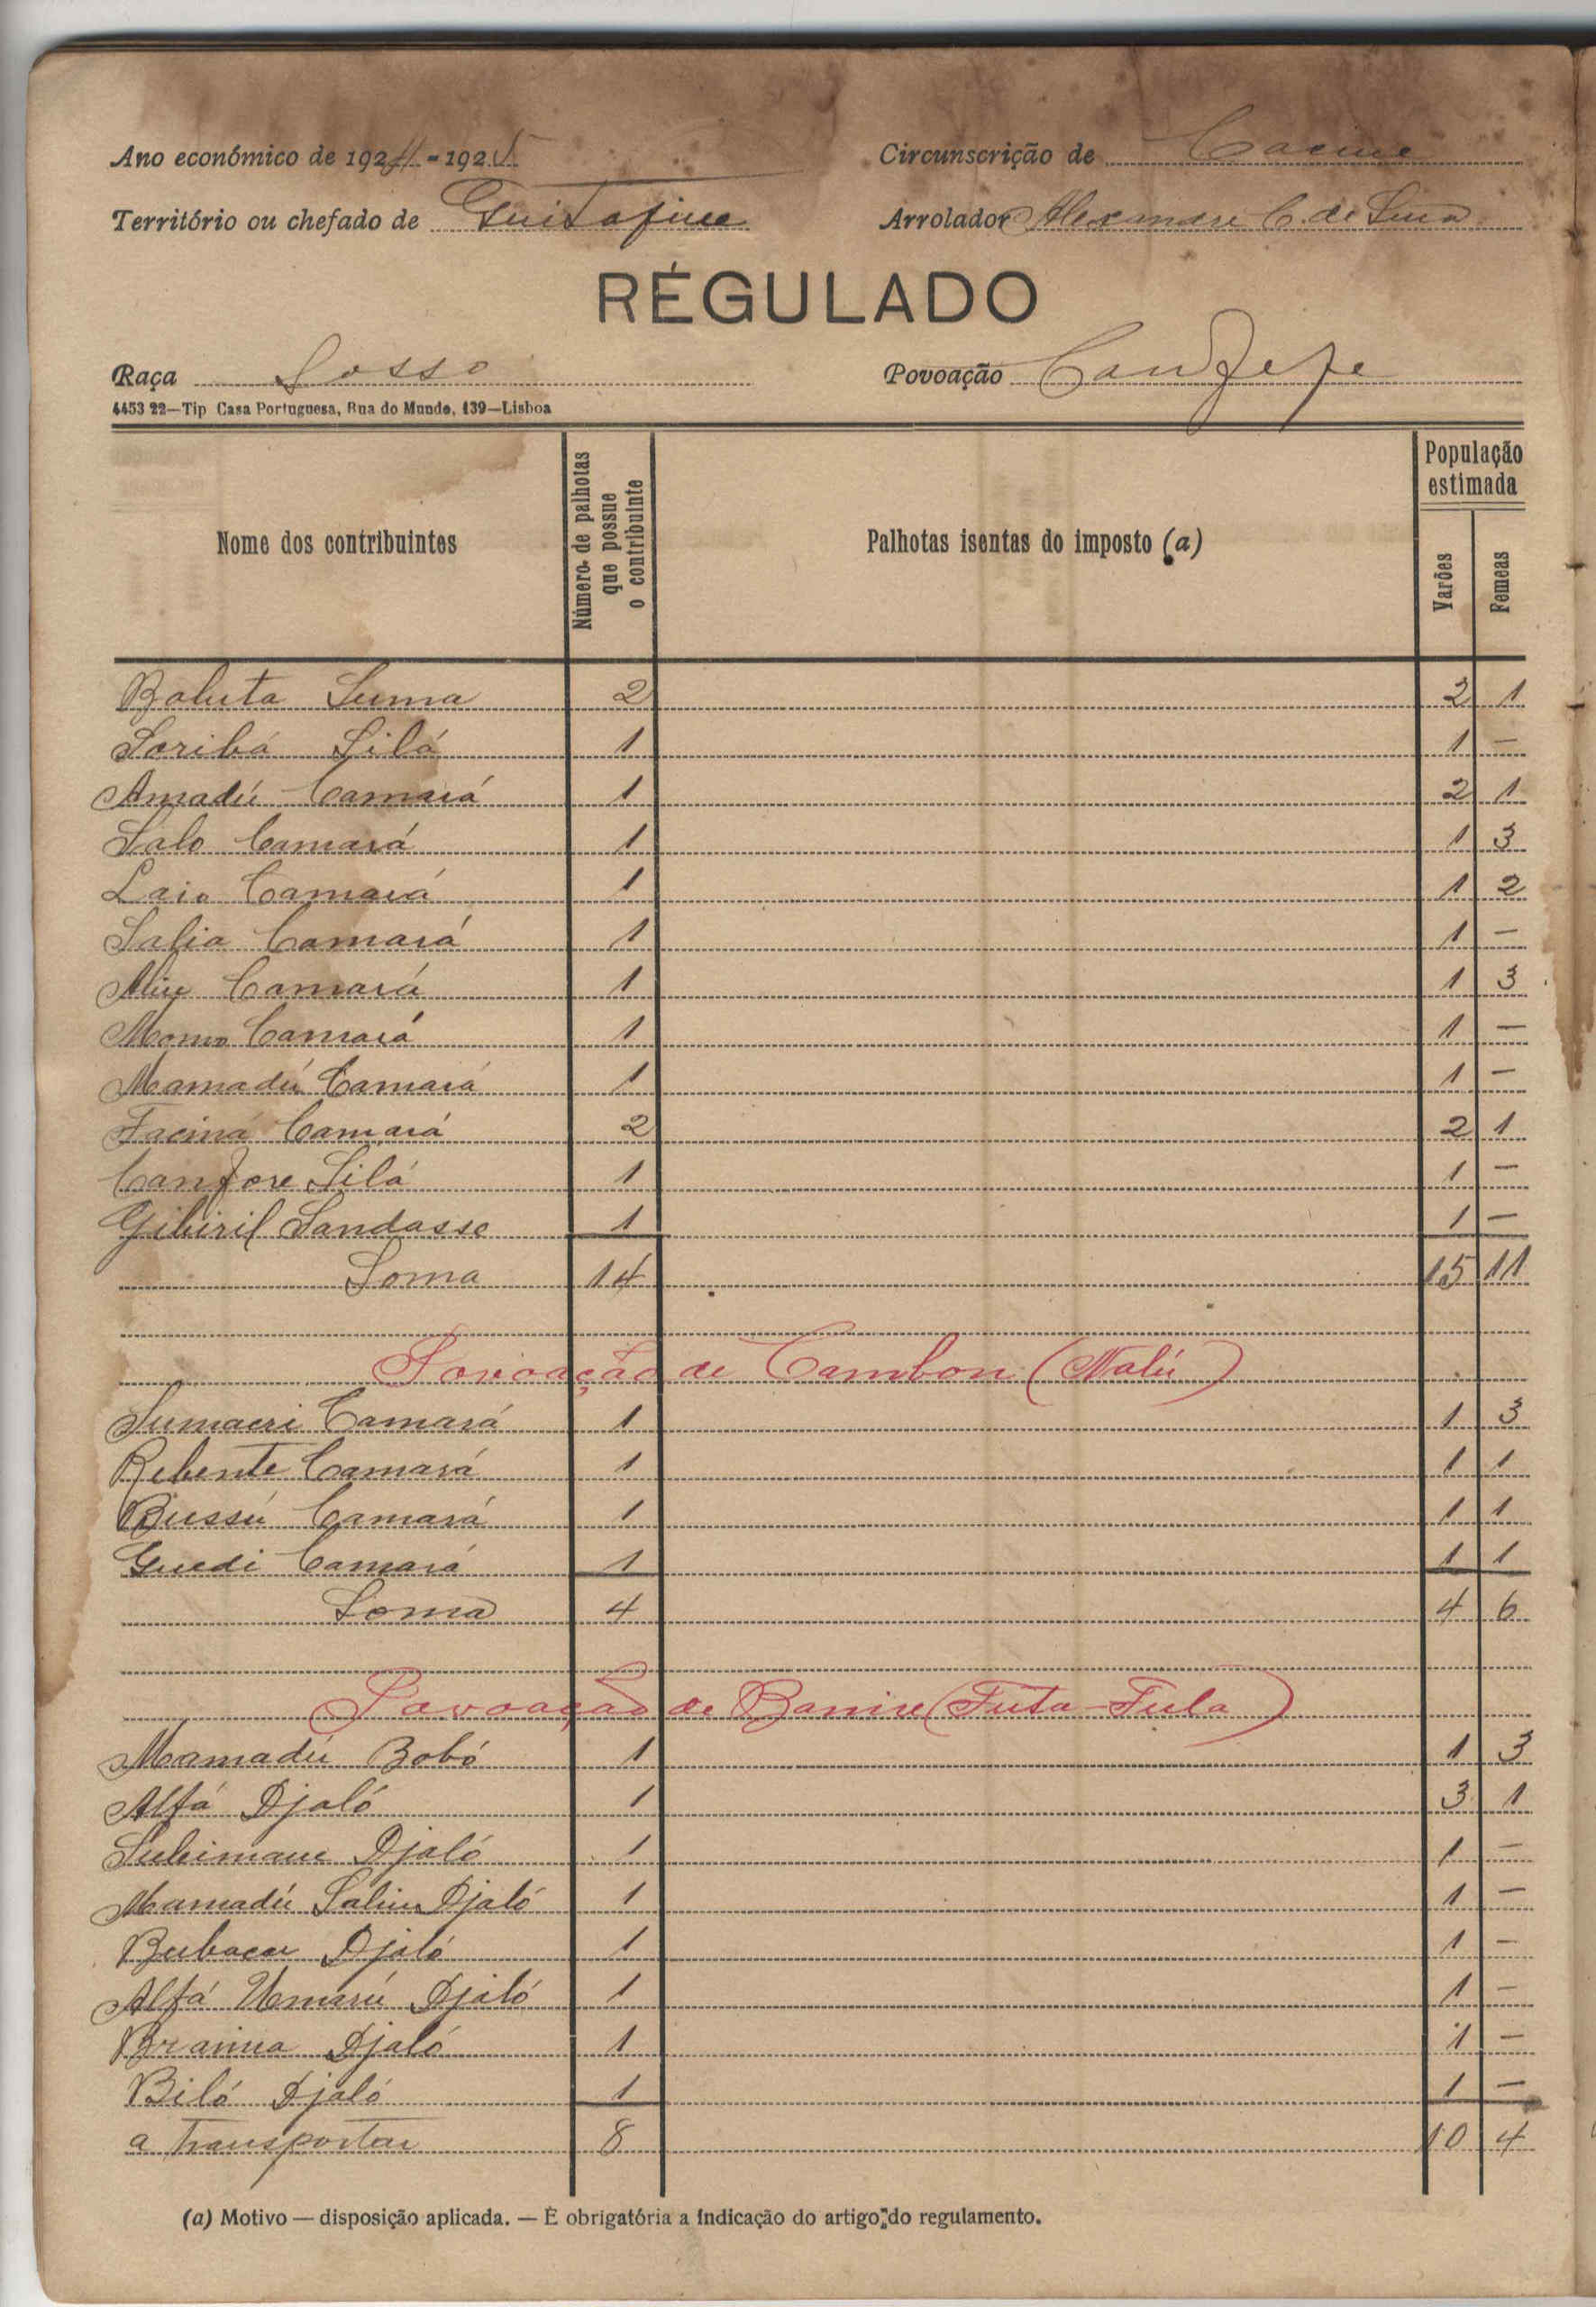 Ano económico de 1924 - 1925 Circunscrição de Cacine
Território ou chefado de Guitafine Arrolador Alexandre C. de
RÉGULADO
Raça Sosso Povoação Canfefe
4453 22—Tip Casa Portuguesa, Rua do Mundo, 139—Lisboa
Nome dos contribuintes Número de palhotas que possue o contribuinte Palhotas isentas do imposto (a) População estimada Varões Femeas
Baluta Suma 2 2 1
Soribá Silá 1 1 —
Amadú Camará 1 2 1
Salo Camará 1 1 3
Laio Camará 1 1 2
Salia Camará 1 1 —
Aliu Camará 1 1 3
Momo Camará 1 1 —
Mamadú Camará 1 1 —
Faciná Camará 2 2 1
Canfore Silá 1 1 —
Gibiril Sandasse 1 1 —
Soma 14 15 11
Povoação de Cambon (Nalú)
Sumaeri Camará 1 1 3
Rebente Camará 1 1 1
Bussú Camará 1 1 1
Guedi Camará 1 1 1
Soma 4 4 6
Povoação de Banire (Futa-Fula)
Mamadú Bobó 1 1 3
Alfá Djaló 1 3 1
Suleimane Djaló 1 1 —
Mamadú Saliu Djaló 1 1 —
Bubacar Djaló 1 1 —
Alfá Umarú Djaló 1 1 —
Braima Djaló 1 1 —
Biló Djaló 1 1 —
a transportar 8 10 4
(a) Motivo — disposição aplicada. — É obrigatória a indicação do artigo do regulamento.